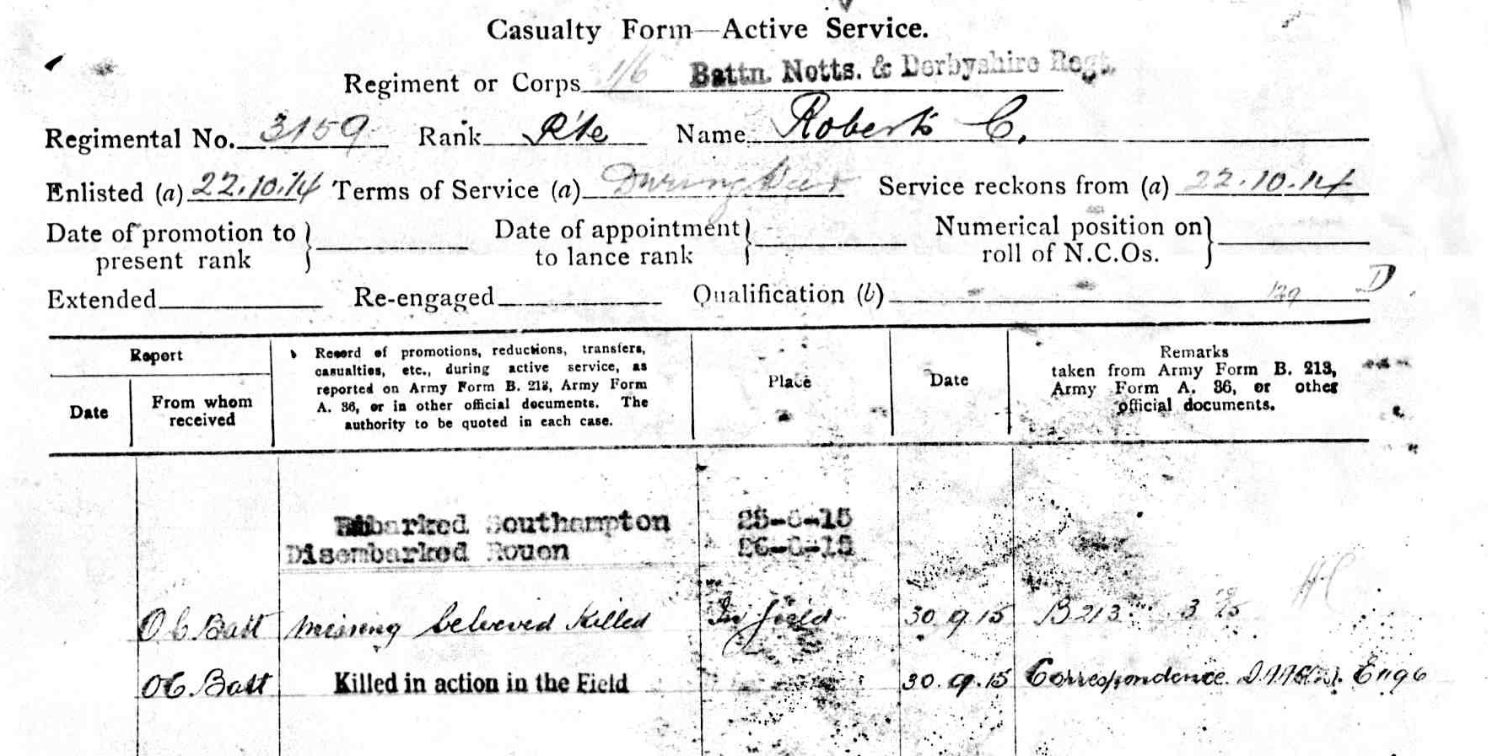 Casualty Form—Active Service.
Regiment or Corps 1/6 Battn. Notts. & Derbyshire Regt.
Regimental No. 3159 Rank Pte Name Roberts C.
Enlisted (a) 22.10.14 Terms of Service (a) During War Service reckons from (a) 22.10.14
Date of promotion to } Date of appointment } Numerical position on }
present rank to lance rank roll of N.C.Os.
Extended Re-engaged Qualification (b) D
Report
Date
From whom
received
Record of promotions, reductions, transfers,
casualties, etc., during active service, as
reported on Army Form B. 213, Army Form
A. 36, or in other official documents. The
authority to be quoted in each case.
Place
Date
Remarks
taken from Army Form B. 213,
Army Form A. 36, or other
official documents.
Embarked Southampton
Disembarked Rouen
O C Batt missing believed Killed In field 30.9.15 B213
O C. Batt Killed in action in the Field 30.9.15 Correspondence